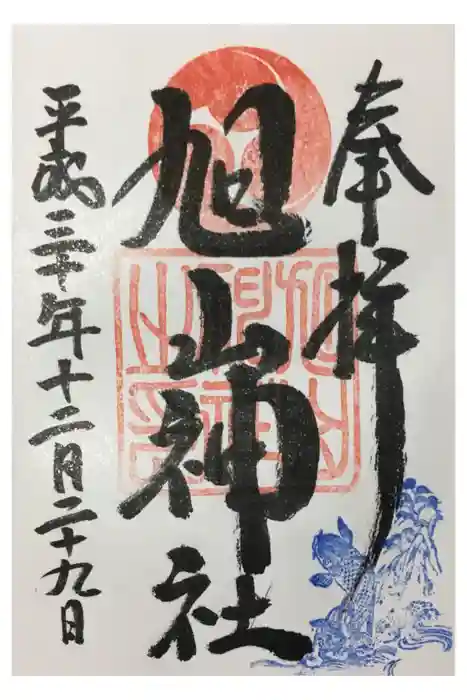 奉拝
旭山神社
平成三十年十二月二十九日
旭山神社之印